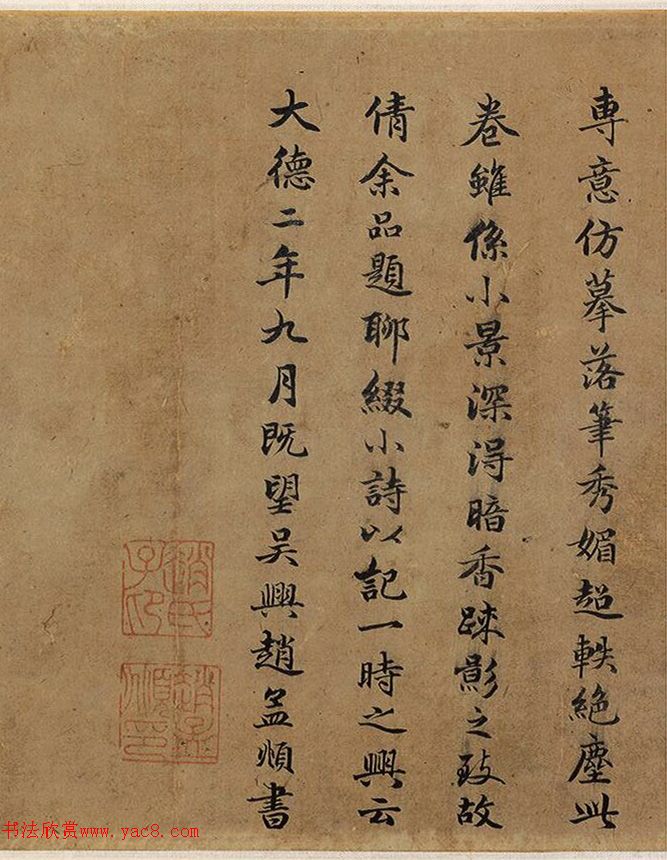 專意仿摹落筆秀媚超軼絕塵此
卷雖係小景深得暗香踈影之致故
倩余品題聊綴小詩以記一時之興云
大德二年九月既望吳興趙孟頫書
趙氏子印
趙孟頫印
书法欣赏www.yac8.com